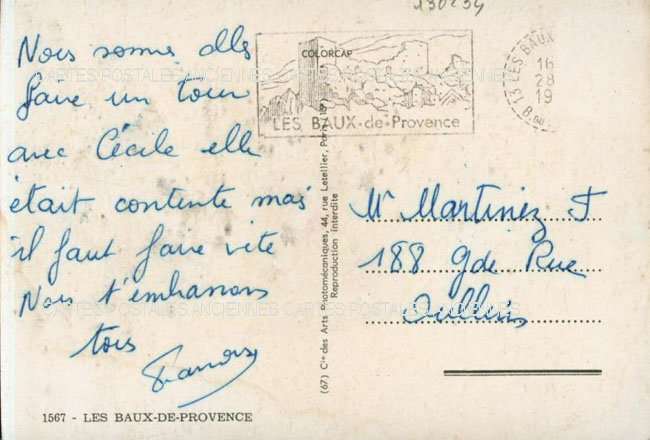 130234
Nous somme allés
faire un tour
avec Cécile elle
était contente mais
il faut faire vite
Nous t'embrassons
tous
COLORCAP
LES BAUX-de-Provence
13 LES BAUX
16
28
19
Mr Martinez F
188 gde Rue
Oullins
(67) Cie des Arts Photomécaniques, 44, rue Letellier, Paris
Reproduction interdite
CARTES POSTALES ANCIENNES CARTES POSTALES ANCIENNES
CARTES POSTALES ANCIENNES CARTES POSTALES ANCIENNES
1567 - LES BAUX-DE-PROVENCE